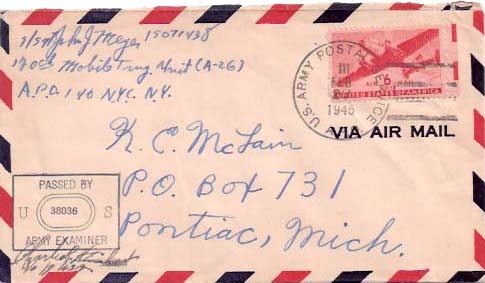 S/Sgt John J Meyer 15071438
Mobile Trng Unit (A-26)
A.P.O. 140 N.Y.C. N.Y.
U.S. ARMY POSTAL SERVICE
FEB
1945
AIR MAIL
6¢
UNITED STATES OF AMERICA
VIA AIR MAIL
K. C. McLain
P.O. Box 731
Pontiac, Mich.
PASSED BY
U 38036 S
ARMY EXAMINER